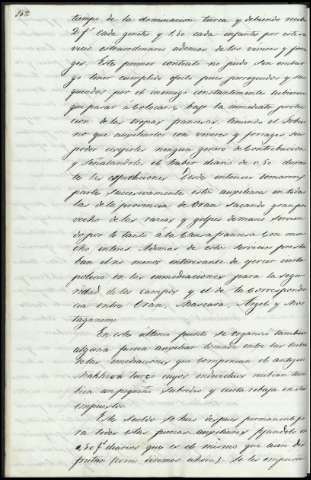 162
tiempo de la dominacion turca y debiendo recibir
2 f.s cada ginete y 1,50 cada infante por este ser
vicio estraordinario ademas de los viveres y forra
ges. Este primer contrato no pudo sin embar
go tener cumplido efecto pues perseguidos y
por el enemigo constantemente tubieron
que pasar a colocarse bajo la inmediata protec
cion de las tropas francesas teniendo el Gobier
no que auxiliarlos con viveres y forrages sin
poder exigirles ningun genero de Contribucion
y señalandoles el haber diario de 0,50 duran
te las espediciones. Desde entonces tomaron
parte succesivamente estos auxiliares en todas
las de la provincia de Oran sacando gran pro
vecho de las razias y golpes de mano sirvien
do por lo tanto á la Causa francesa con mu
cho interes. Ademas de estos servicios presta
ban el no menos interesante de ejercer cierta
policia en las inmediaciones para la segu
ridad de los campos y el de la Corresponden
cia entre Oran, Mascara, Argel y Mos
taganem.
En este ultimo punto se organizó tambien
alguna fuerza auxiliar tomada entre las tribus
de las inmediaciones que componian el antiguo
Makhzen turco cuyos individuos recibian tam
bien un pequeño subsidio y cierta rebaja en los
impuestos.
Este sueldo se hizo despues permanente pa
ra todas estas fuerzas auxiliares fijandolo en
0,50 f.s diarios que es el mismo que aun dis
frutan (como diremos ahora). Se les